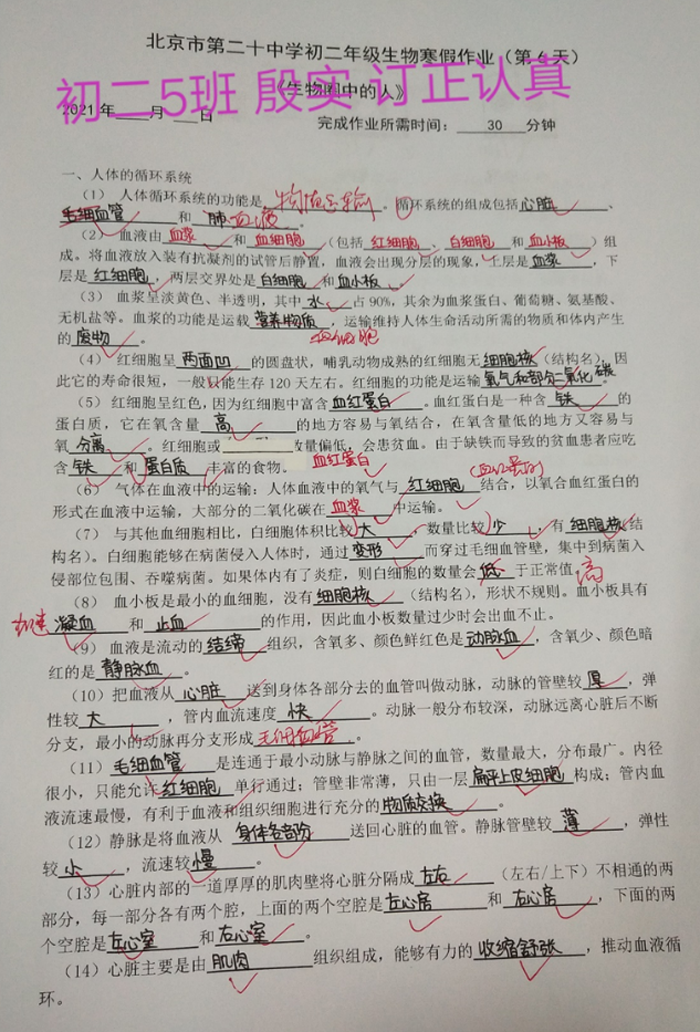 北京市第二十中学初二年级生物寒假作业（第6天）
初二5班 殷实 订正认真
《生物圈中的人》
2021年 月 日 完成作业所需时间： 30 分钟
一、人体的循环系统
（1） 人体循环系统的功能是 物质运输 。循环系统的组成包括 心脏 、
毛细血管 和 肺 血液 。
（2） 血液由 血浆 和 血细胞 （包括 红细胞 、 白细胞 和 血小板 ）组
成。将血液放入装有抗凝剂的试管后静置，血液会出现分层的现象，上层是 血浆 ，下
层是 红细胞 ，两层交界处是 白细胞 和 血小板 。
（3） 血浆呈淡黄色、半透明，其中 水 占90%，其余为血浆蛋白、葡萄糖、氨基酸、
无机盐等。血浆的功能是运载 营养物质 ，运输维持人体生命活动所需的物质和体内产生
血细胞
的 废物 。
（4） 红细胞呈 两面凹 的圆盘状，哺乳动物成熟的红细胞无 细胞核 （结构名），因
此它的寿命很短，一般只能生存120天左右。红细胞的功能是运输 氧气和部分二氧化碳 。
（5） 红细胞呈红色，因为红细胞中富含 血红蛋白 。血红蛋白是一种含 铁 的
蛋白质，它在氧含量 高 的地方容易与氧结合，在氧含量低的地方又容易与
氧 分离 。红细胞或 数量偏低，会患贫血。由于缺铁而导致的贫血患者应吃
含 铁 和 蛋白质 丰富的食物。 血红蛋白
（6） 气体在血液中的运输：人体血液中的氧气与 红细胞 结合，以氧合血红蛋白的
形式在血液中运输，大部分的二氧化碳在 血浆 中运输。
（7） 与其他血细胞相比，白细胞体积比较 大 ，数量比较 少 ，有 细胞核 （结
构名）。白细胞能够在病菌侵入人体时，通过 变形 而穿过毛细血管壁，集中到病菌入
侵部位包围、吞噬病菌。如果体内有了炎症，则白细胞的数量会 低 于正常值。 高
（8） 血小板是最小的血细胞，没有 细胞核 （结构名），形状不规则。血小板具有
加速 凝血 和 止血 的作用，因此血小板数量过少时会出血不止。
（9） 血液是流动的 结缔 组织，含氧多、颜色鲜红色是 动脉血 ，含氧少、颜色暗
红的是 静脉血 。
（10）把血液从 心脏 送到身体各部分去的血管叫做动脉，动脉的管壁较 厚 ，弹
性较 大 ，管内血流速度 快 。动脉一般分布较深，动脉远离心脏后不断
分支，最小的动脉再分支形成 毛细血管 。
（11） 毛细血管 是连通于最小动脉与静脉之间的血管，数量最大，分布最广。内径
很小，只能允许 红细胞 单行通过；管壁非常薄，只由一层 扁平上皮细胞 构成；管内血
液流速最慢，有利于血液和组织细胞进行充分的 物质交换 。
（12）静脉是将血液从 身体各部分 送回心脏的血管。静脉管壁较 薄 ，弹性
较 小 ，流速较 慢 。
（13）心脏内部的一道厚厚的肌肉壁将心脏分隔成 左右 （左右/上下）不相通的两
部分，每一部分各有两个腔，上面的两个空腔是 左心房 和 右心房 ，下面的两
个空腔是 左心室 和 右心室 。
（14）心脏主要是由 肌肉 组织组成，能够有力的 收缩舒张 ，推动血液循
环。